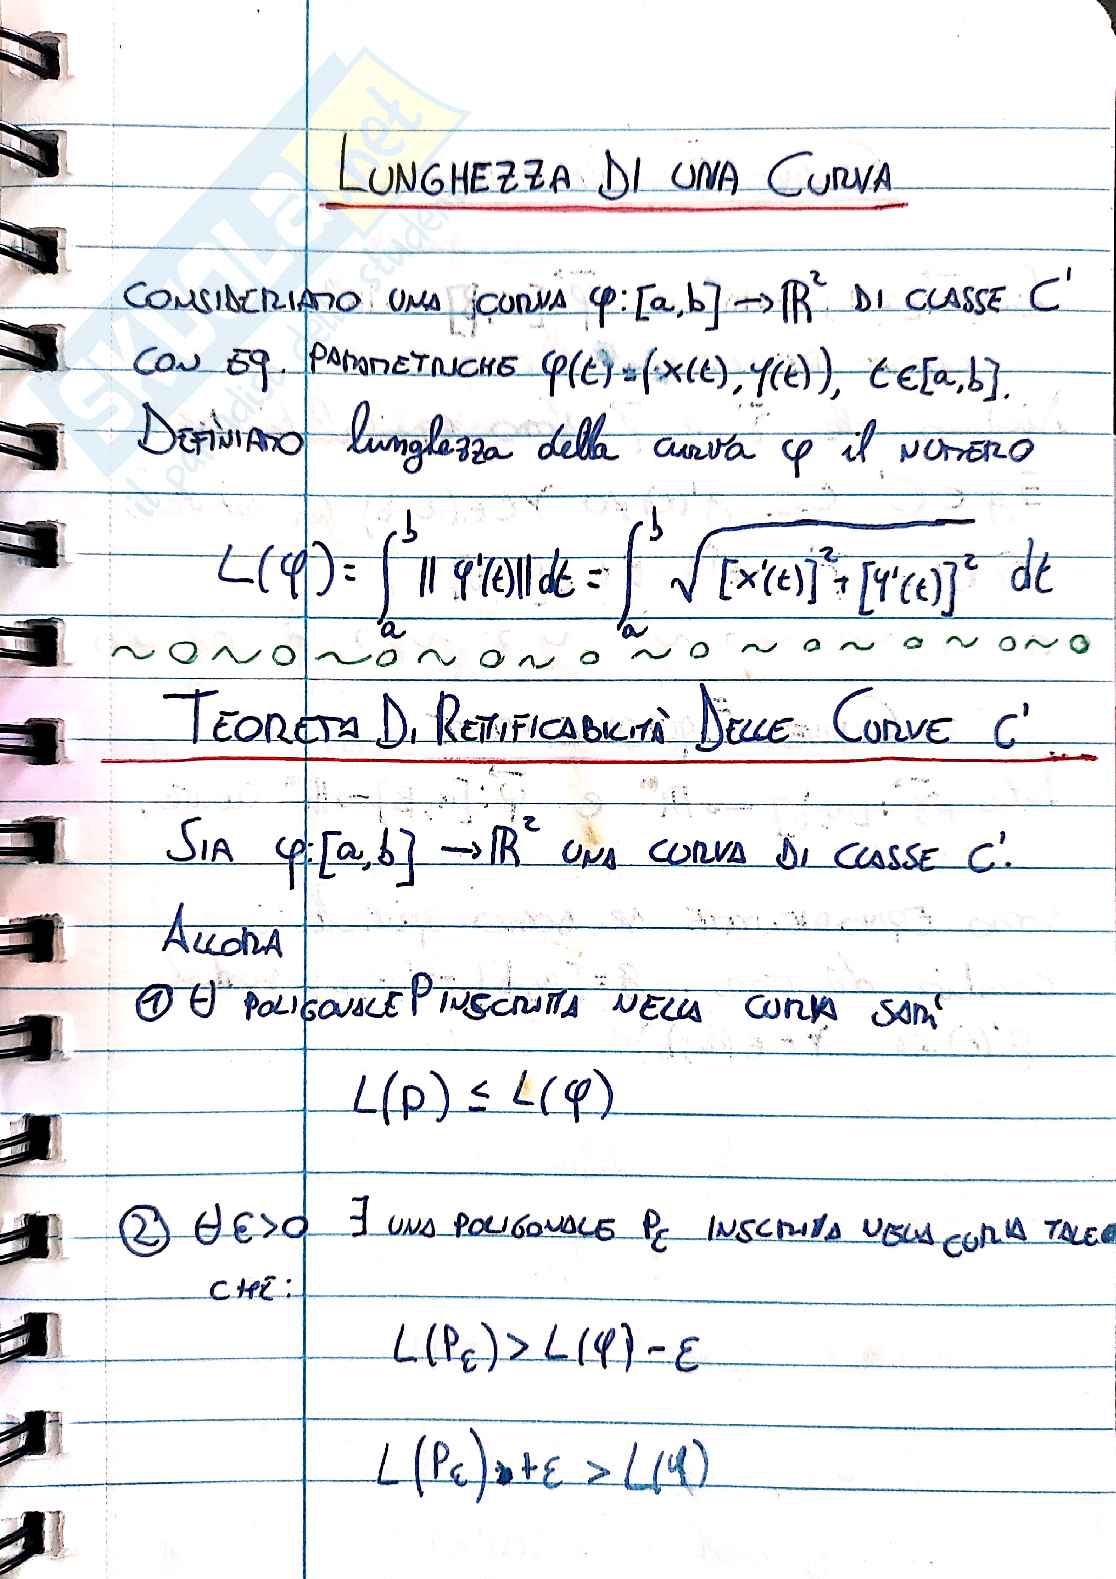 LUNGHEZZA DI UNA CURVA
CONSIDERIAMO UNA CURVA φ:[a,b]→ℝ² DI CLASSE C¹
CON EQ. PARAMETRICHE φ(t)=(x(t),y(t)), t∈[a,b].
DEFINIAMO lunghezza della curva φ il NUMERO
L(φ)=∫ₐᵇ ||φ'(t)||dt=∫ₐᵇ √([x'(t)]²+[y'(t)]²) dt
TEOREMA DI RETTIFICABILITÀ DELLE CURVE C¹
SIA φ:[a,b]→ℝ² UNA CURVA DI CLASSE C¹.
ALLORA
① ∀ POLIGONALE P INSCRITTA NELLA CURVA SARÀ
L(P) ≤ L(φ)
② ∀ε>0 ∃ UNA POLIGONALE Pε INSCRITTA NELLA CURVA TALE
CHE:
L(Pε)>L(φ)-ε
L(Pε)+ε>L(φ)
SKUOLA.net
il paradiso dello studente